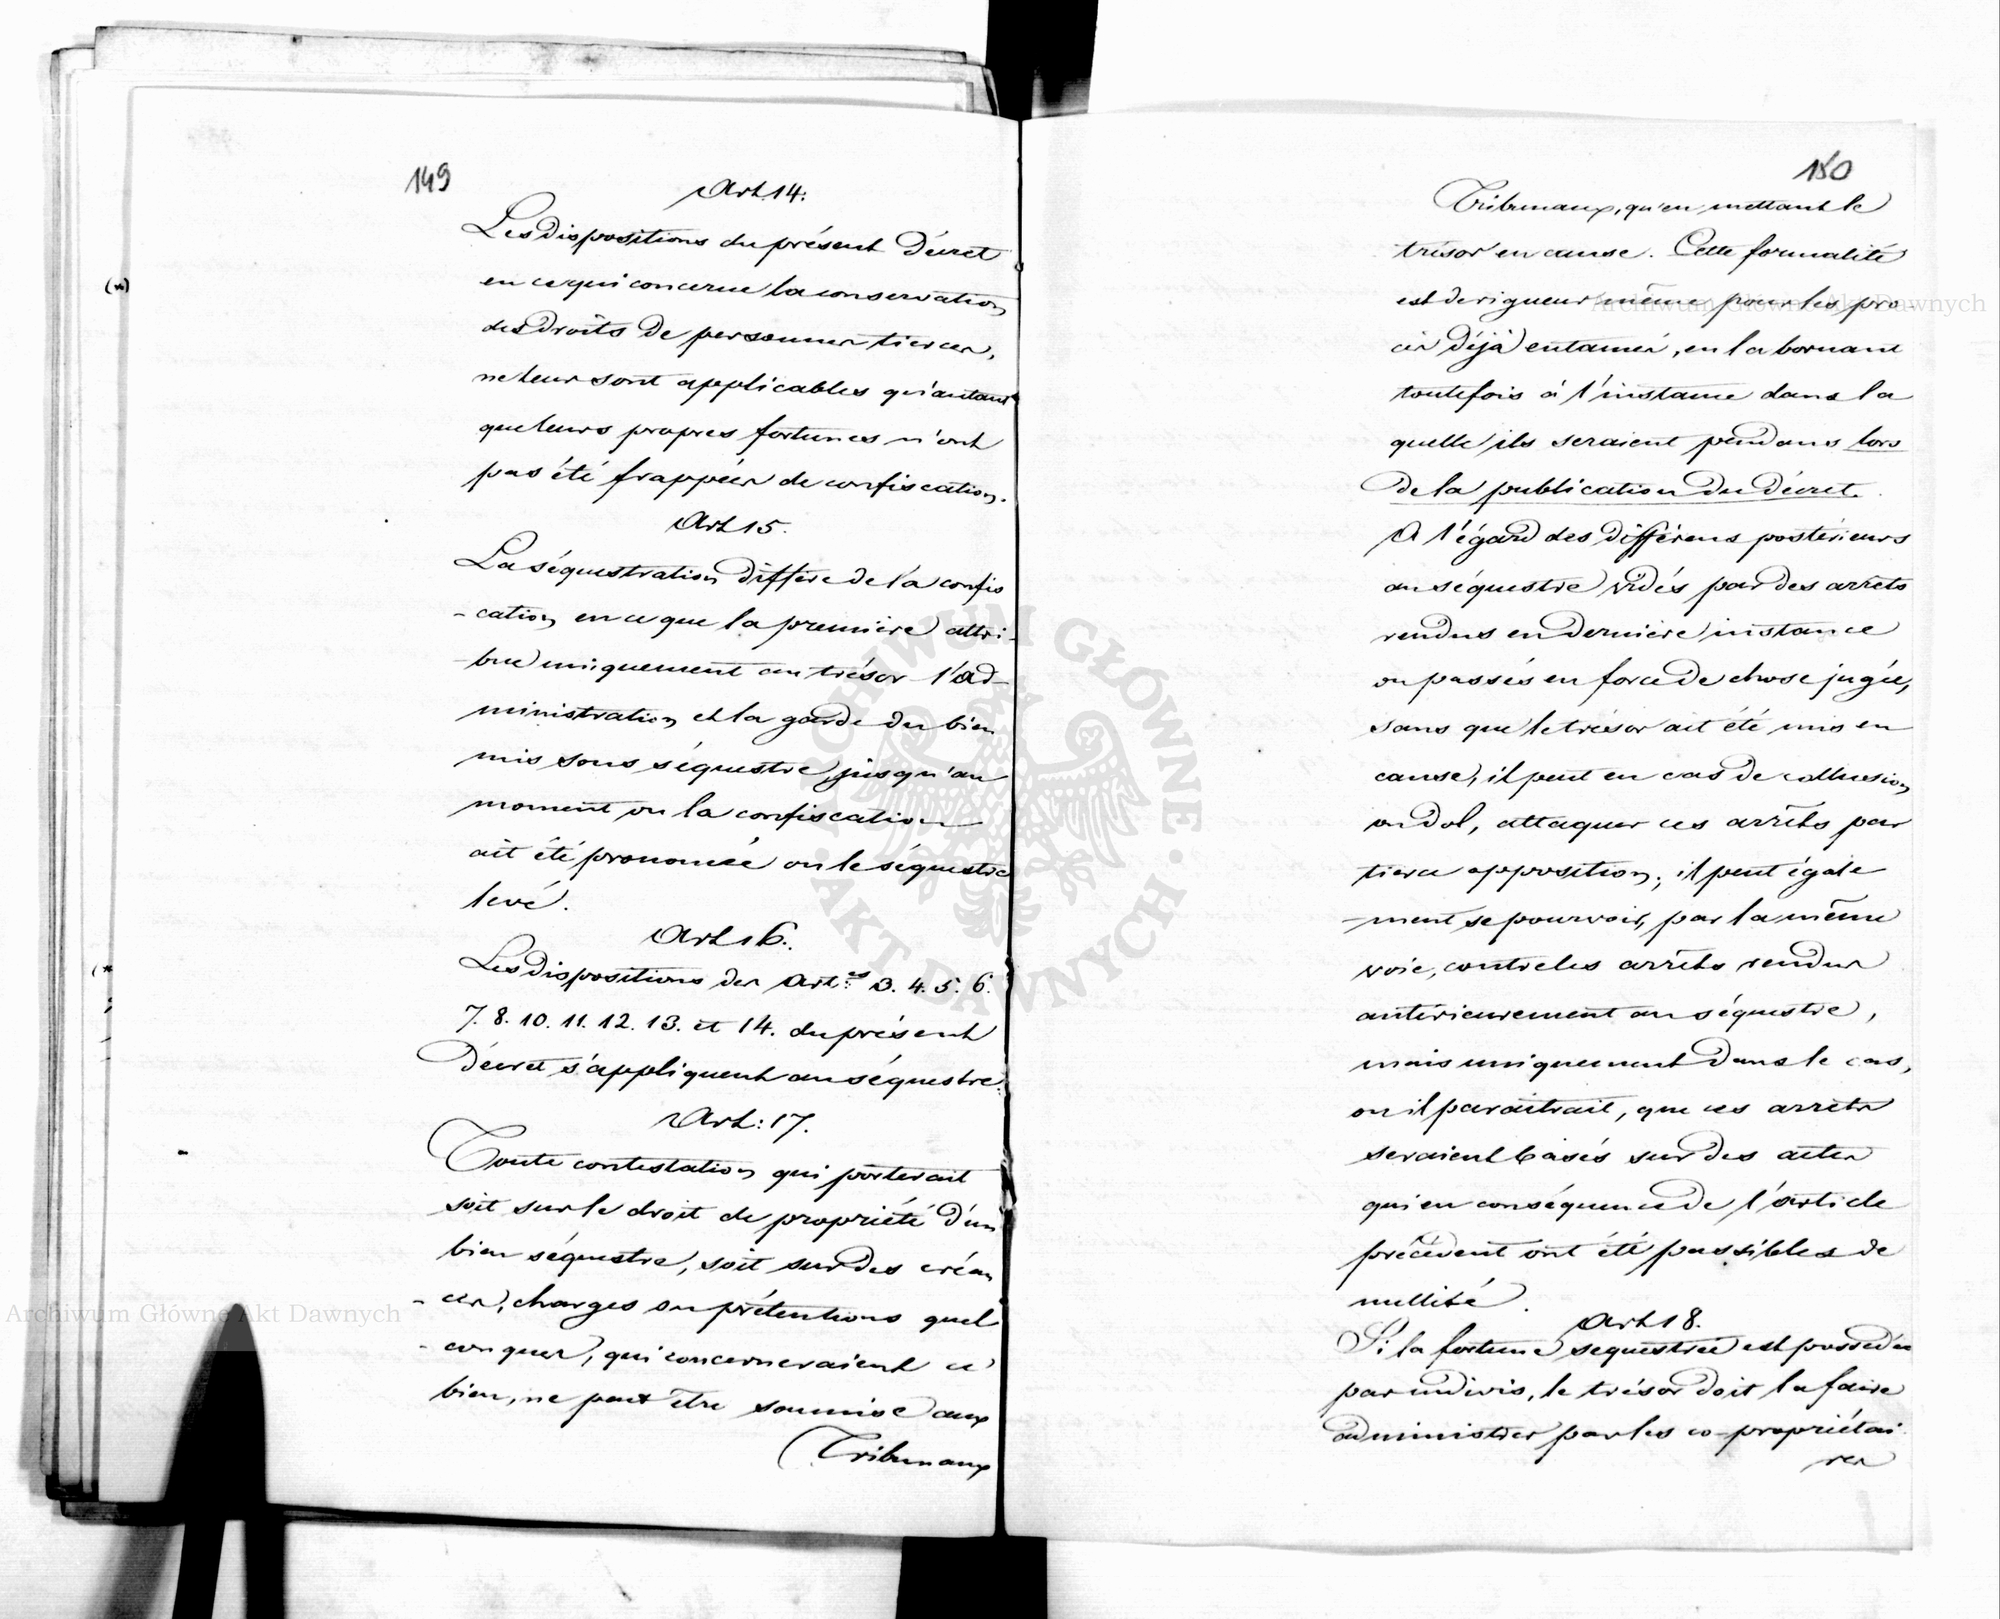 149
Art. 14:
Les dispositions du présent Décret
en ce qui concerne la conservation
des droits de personnes tierces,
ne leur sont applicables qu'autant
que leurs propres fortunes n'ont
pas été frappées de confiscation.
Art 15.
La séquestration diffère de la confis
- cation, en ce que la première attri-
- bue uniquement au trésor l'ad-
ministration et la garde du bien
mis sous séquestre, jusqu'au
moment ou la confiscation
ait été prononcée ou le séquestre
levé.
Art 16.
Les dispositions des Art:es 3. 4. 5. 6.
7. 8. 10. 11. 12. 13. et 14. du présent
Décret s'appliquent au séquestre.
Art: 17.
Toute contestation qui porterait
soit sur le droit de propriété d'un
bien séquestre, soit sur des créan
- ces, charges ou prétentions quel
- conques, qui concerneraient ce
bien, ne peut être soumise aux
Tribunaux
150
Tribunaux, qu'en mettant le
trésor en cause. Cette formalité
est de rigueur même pour les pro
cès déjà entamés, en la bornant
toutefois à l'instance dans la
quelle ils seraient pendans lors
de la publication du Décret.
A l'égard des différens postérieurs
au séquestre vidés par des arrêts
rendus en dernière instance
ou passés en force de chose jugée,
sans que le trésor ait été mis en
cause, il peut en cas de collusion
ou dol, attaquer ces arrêts par
tierce opposition; il peut égale
- ment se pourvoir, par la même
voie, contre les arrêts rendus
antérieurement au séquestre,
mais uniquement dans le cas,
ou il paraitrait, que ces arrêts
seraient basés sur des actes
qui en conséquence de l'article
précédent ont été passibles de
nullité.
Art 18.
Si la fortune sequestrée est possedée
par indivis, le trésor doit la faire
administrer par les co-propriétai
res
Archiwum Główne Akt Dawnych
Archiwum Główne Akt Dawnych
ARCHIWUM GŁÓWNE · AKT DAWNYCH ·